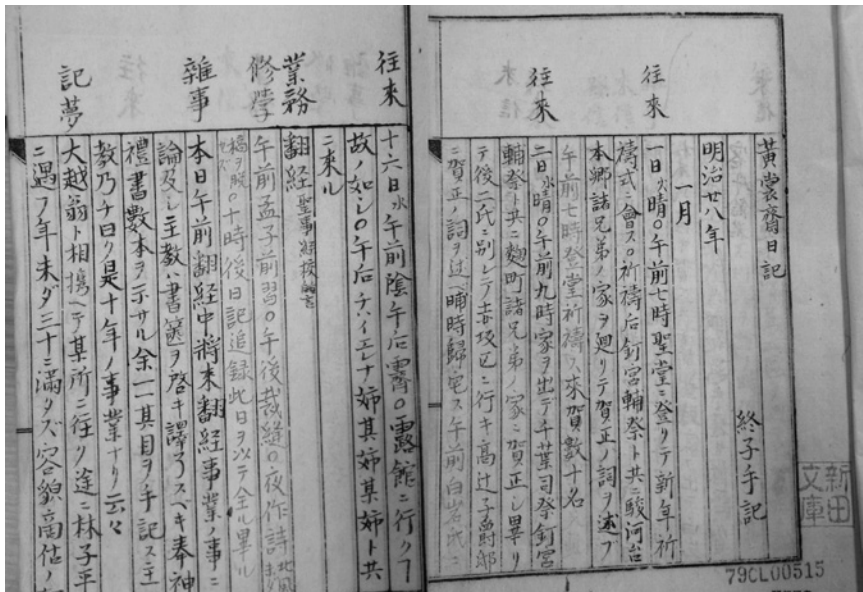 黃裳齋日記
終子手記
明治廿八年
一月
往来
一日火晴〇午前七時聖堂ニ登リテ新年祈
禱式ニ會ス〇祈禱后釘宮輔祭ト共ニ駿河台
本郷諸兄弟ノ家ヲ廻リテ賀正ノ詞ヲ述フ
午前七時登堂祈禱ス来賀数十名
往来
二日水晴〇午前九時家ヲ出デ千葉司祭釘宮
輔祭ト共ニ麴町諸兄弟ノ家ニ賀正シ畢リ
テ後二氏ニ別レテ赤坂区ニ行キ高辻子爵邸
ニ賀正ノ詞ヲ述ベ晡時歸宅ス午前白岩氏ニ
新田
文庫
79CL00515
往来
十六日水午前陰午后霽〇露館ニ行クヿ
故ノ如シ〇午后チハイエレナ姉其姉某姉ト共
ニ来ル
業務
翻経
修學
午前孟子前習〇午後裁縫〇夜作詩
稿ヲ脱
セズ
〇十時後日記追録此日ヲ以テ全ル畢ル
雜事
本日午前翻経中將来翻経事業ノ事ニ
論及シ主教ハ書篋ヲ啓キ譯了スベキ奉神
禮書數本ヲ示サル余一一其目ヲ手記ス主
教乃チ曰ク是十年ノ事業ナリ云々
記夢
大越翁ト相携ヘテ某所ニ往ク途ニ林子平
ニ遇フ年未ダ三十ニ滿タズ容貌高估ノ